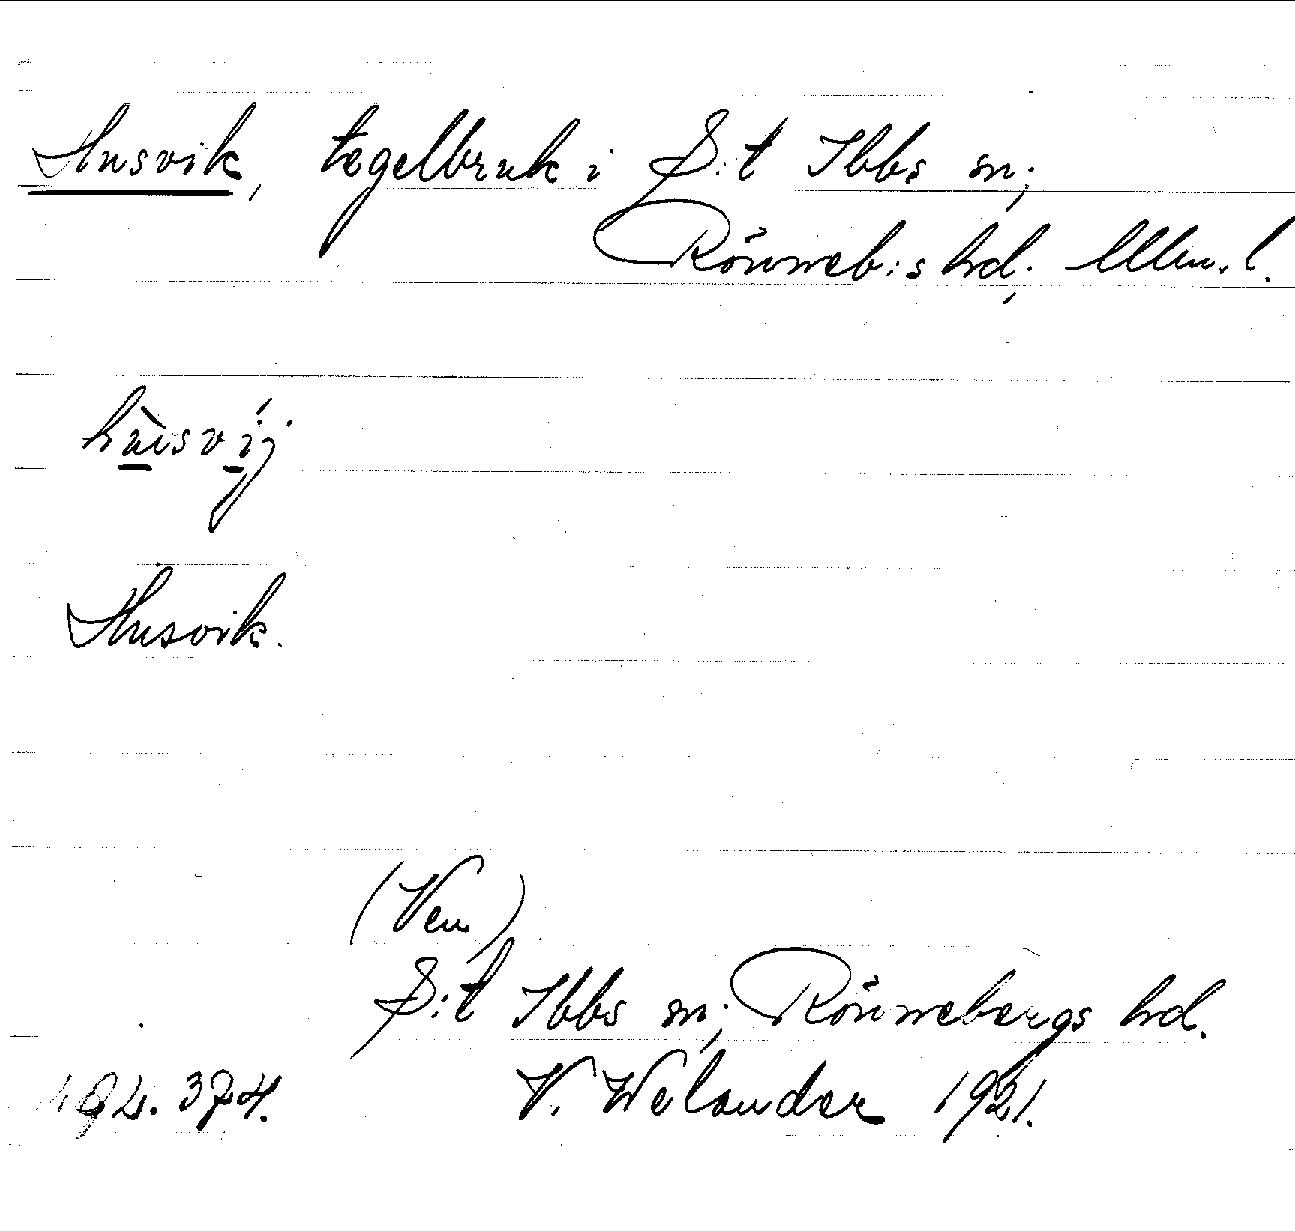 Husvik, tegelbruk i S:t Ibbs sn;
Rönneb:s hd; Mlm. l.
hùsvíj
Husvik.
(Ven)
S:t Ibbs sn; Rönnebergs hd.
194.374. V. Welander 1921.